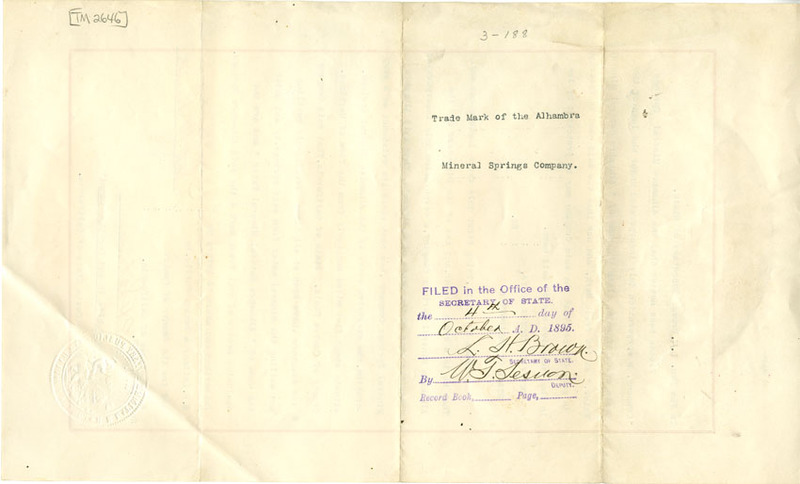 [TM 2646]
3-188
Trade Mark of the Alhambra
Mineral Springs Company.
FILED in the Office of the
SECRETARY OF STATE,
the 4th day of
October A. D. 1895.
L. H. Brown.
SECRETARY OF STATE.
By W. T. Sesnon.
DEPUTY.
Record Book, Page,